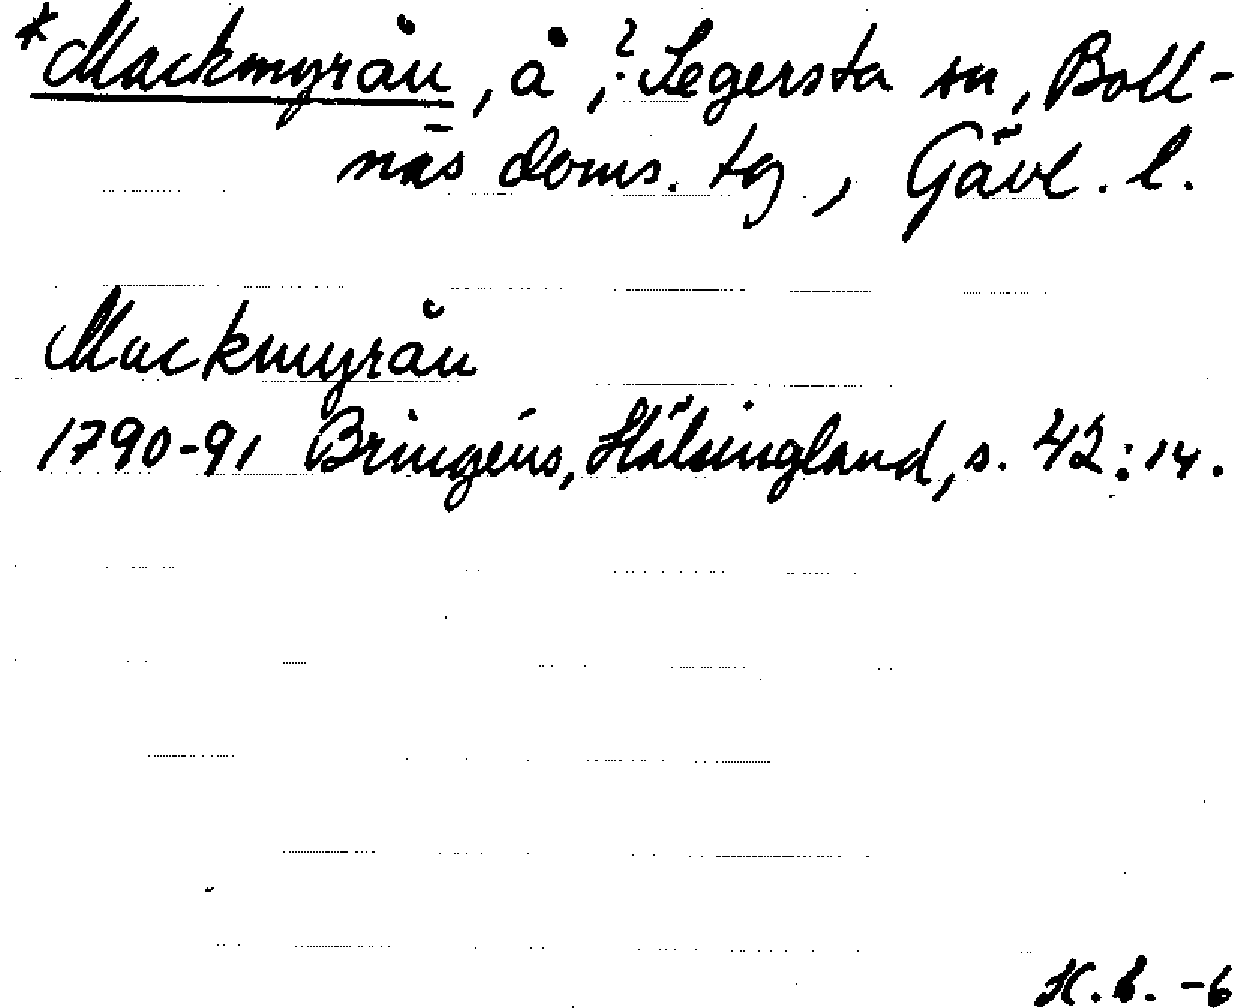 *Mackmyrån, å, ? Segersta sn, Boll-
näs doms. tg, Gävl. l.
Mackmyrån
1790-91 Bringéus, Hälsingland, s. 42:14.
H.B. -6